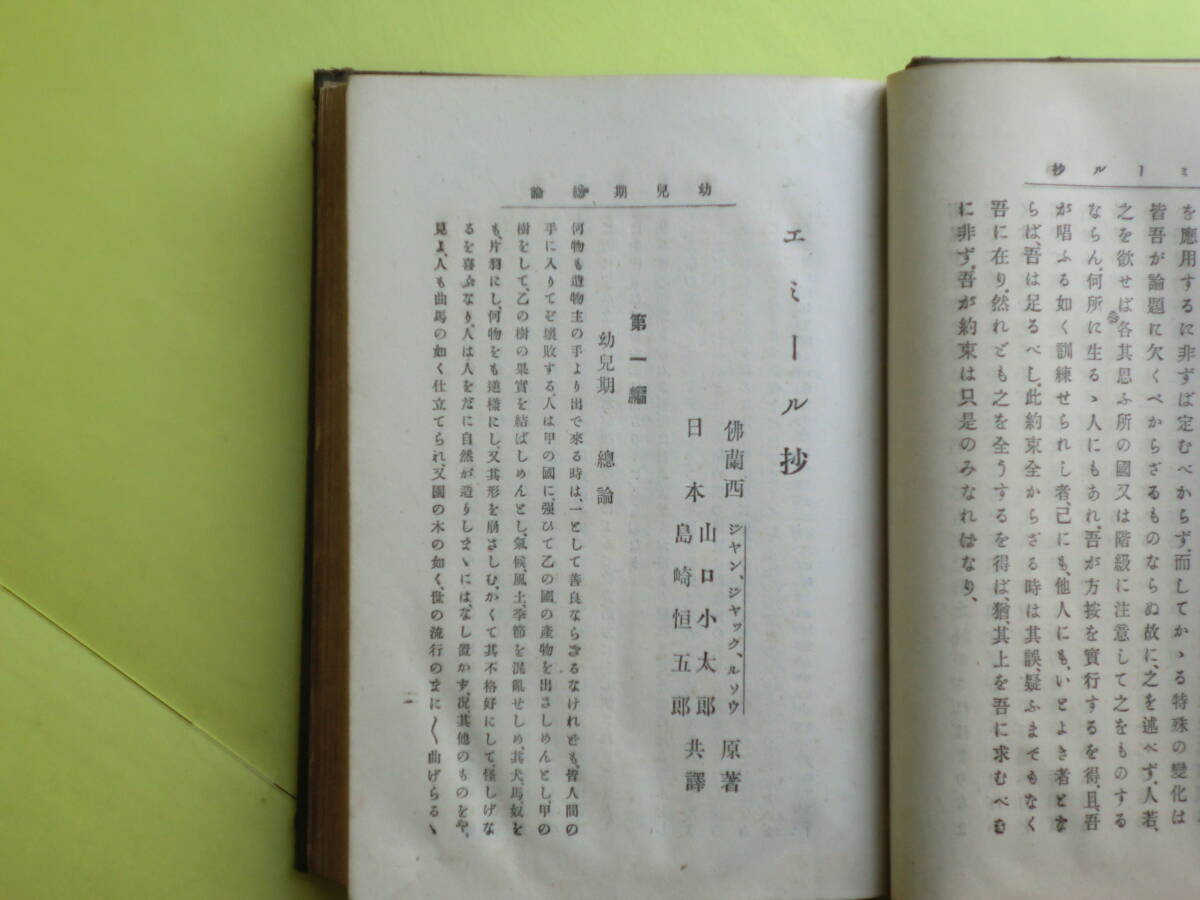 ミール抄
を應用するに非ずば定むべからず、而してかゝる特殊の變化は
皆吾が論題に欠くべからざるものならぬ故に、之を述べず、人若、
之を欲せば各其思ふ所の國又は階級に注意して之をものする
ならん、何所に生るゝ人にもあれ、吾が方按を實行するを得、且、吾
が唱ふる如く訓練せられし者、己にも、他人にも、いとよき者とな
らば、吾は足るべし、此約束全からざる時は其誤、疑ふまでもなく
吾に在り、然れども之を全うするを得ば、猶、其上を吾に求むべき
に非ず、吾が約束は只是のみなればなり、
幼兒期總論
エミール抄
佛蘭西 ジャン、ジャック、ルソウ 原著
日本 山口小太郎 島崎恒五郎 共譯
第一編
幼兒期 總論
何物も造物主の手より出で來る時は、一として善良ならざるなけれども、皆人間の
手に入りてぞ壞敗する、人は甲の國に、强ひて乙の國の產物を出さしめんとし、甲の
樹をして、乙の樹の果實を結ばしめんとし、氣候、風土、季節を混亂せしめ、其犬、馬、奴を
も、片羽にし、何物をも逆樣にし、又其形を崩さしむ、かくて其不格好にして、怪しげな
るを喜ぶなり、人は人をだに自然が造りしまゝには、なし置かず、况、其他のものをや、
見よ、人も曲馬の如く仕立てられ、又園の木の如く、世の流行のまに〱曲げらるゝ
二